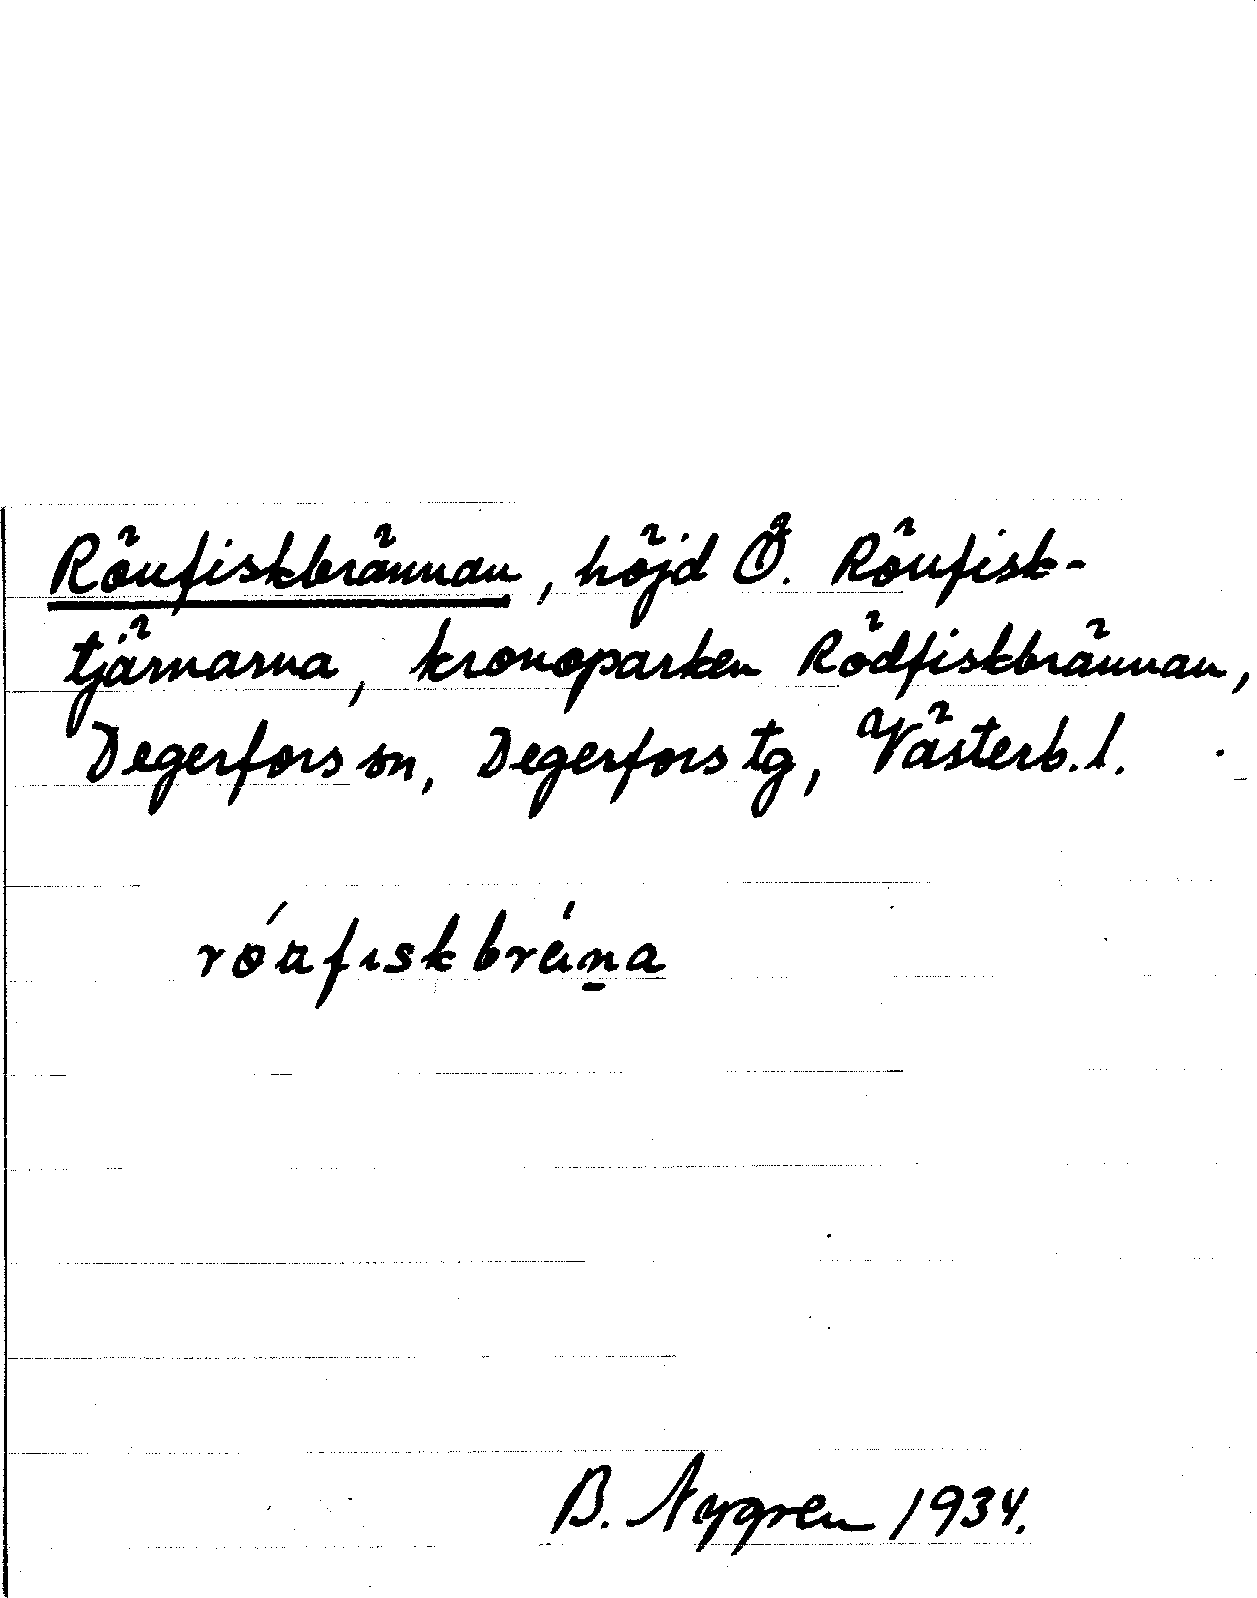 Röufiskbrännan, höjd Ö. Röufisk-
tjärnarna, kronoparken Rödfiskbrännan,
Degerfors sn, Degerfors tg, Västerb. l.
B. Nygren 1934.